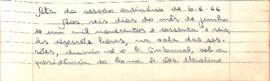 Ata da sessão ordinária de 6-6-66
Aos seis dias do mês de junho
de um mil novecentos e sessenta e seis,
às dezoito horas, na sala das ses-
sões, reuniu-se o E. Tribunal, sob a
presidência do Exmo. Sr. Des.